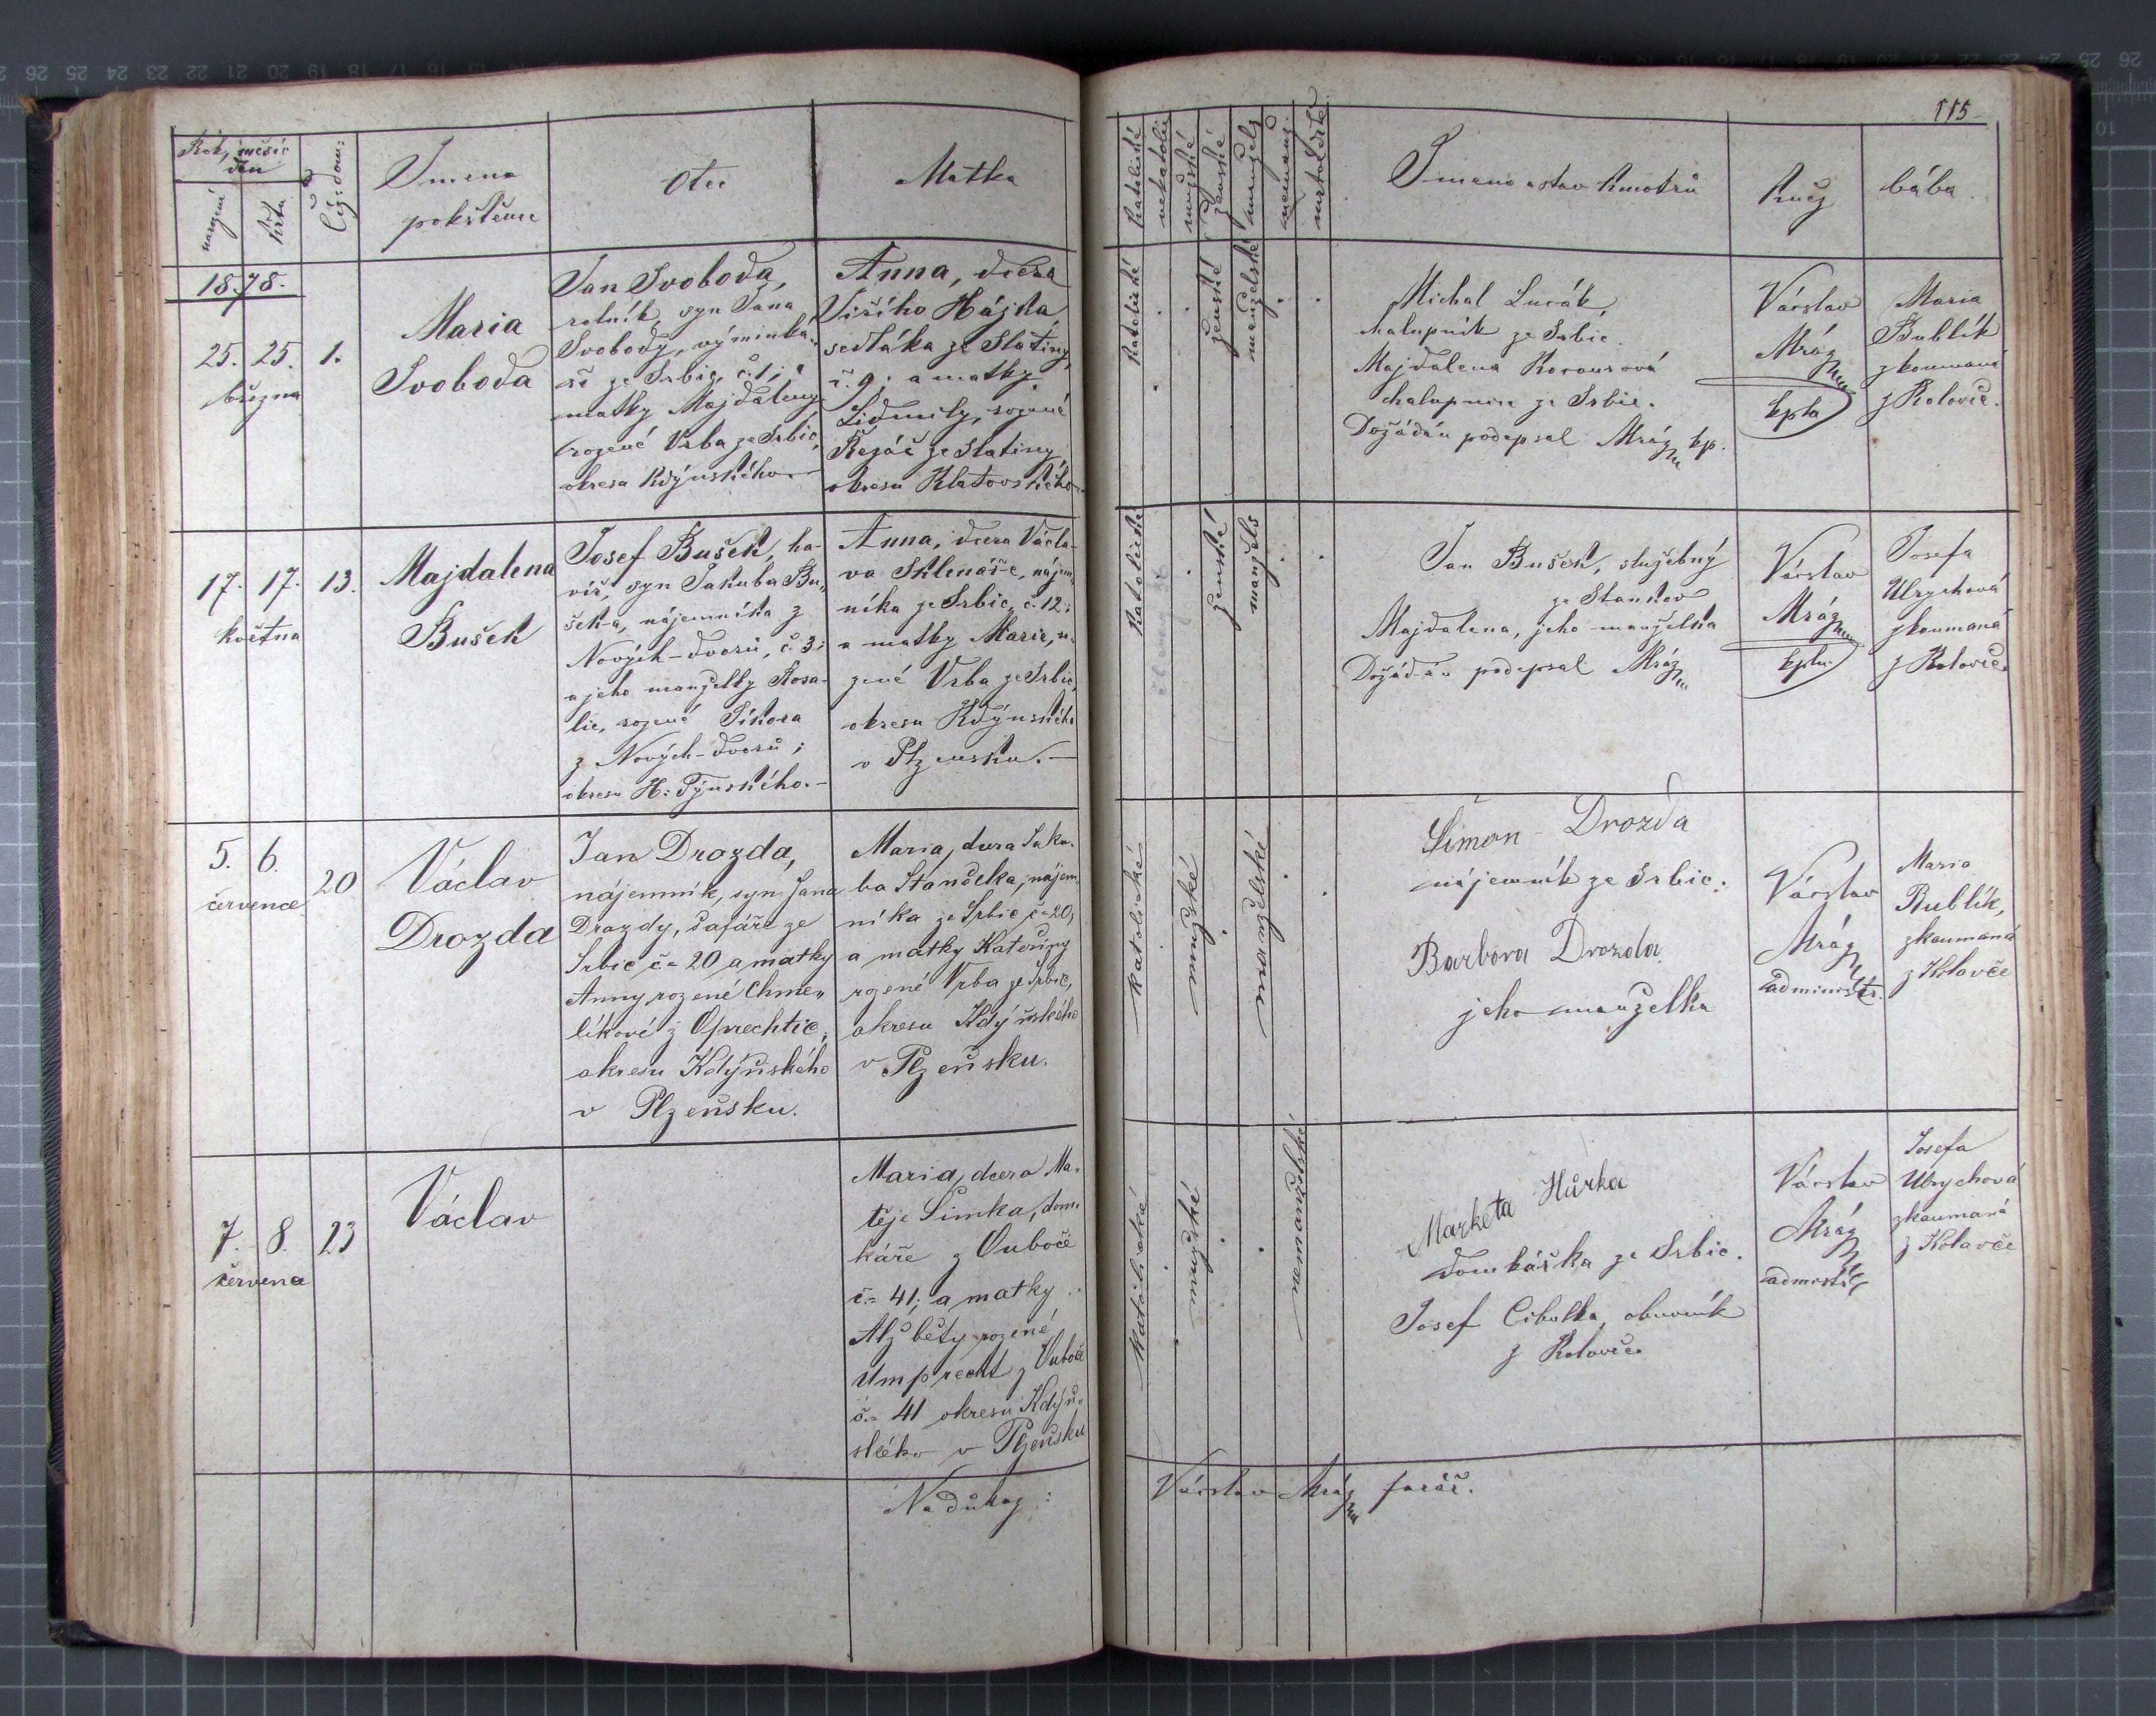 115
Rok, měsíc
den
narození
křtu
Čís: dom:
Jmena
pokřtěnce
Otec
Matka
katolické
nekatolic
mužské
ženské
manžels
nemanž.
mrtvě
Jmeno a stav kmotrů
Kněz
bába.
1878.
25. 25. 1.
března
Maria
Svoboda
Jan Svoboda,
rolník, syn Jana
Svobody, výminká-
ře ze Srbic, č. 1; a
matky Majdaleny
rozené Vrba ze Srbic,
okresu Kdýnského.
Anna, dcera
Jiřího Hájka,
sedláka ze Slatiny,
č. 9; a matky
Lidmily, rozené
Řezáč ze Slatiny
okresu Klatovského
katolické
ženské
manželské
Michal Lucák,
chalupník ze Srbic.
Majdalena
chalupnice ze Srbic.
Dožádán podepsal Mráz kp.
Václav
Mráz
kpla
Maria
Bublík
zkoumaná
z Koloveč.
17. 17. 13.
května
Majdalena
Bušek
Josef Bušek, ha-
víř, syn Jakuba Bu-
šek-a, nájemníka z
Nových-dvorů, č. 3;
a jeho manželky Rosa-
lie, rozené Síkora
z Nových-dvorů;
okresu H: Týnského.-
Anna, dcera Václa-
va Sklenáře, nájem-
níka ze Srbic, č. 12;
a matky Marie, ro-
zené Vrba ze Srbic,
okresu Kdýnského
v Plzensku.-
katolické
ženské
manžels
Jan Bušek, služebný
ze Stankov
Majdalena, jeho manželka
Dožádán podepsal Mráz
Václav
Mráz
kpla.
Josefa
Ulrychová
zkoumaná
z Koloveč.
5. 6. 20
července
Václav
Drozda
Jan Drozda,
nájemník, syn Jana
Drozdy, šafáře ze
Srbic č= 20 a matky
Anny rozené Chme-
líkové z Oprechtic,
okresu Kdýňského
v Plzeňsku.
Maria, dcera Jaku-
ba Stančeka, nájem-
níka ze Srbic č=20,
a matky Kateřiny
rozené Vrba ze Srbic,
okresu Kdýňského
v Plzeňsku.
katolické
mužské
manželské
Šimon - Drozda
nájemník ze Srbic.
Barbora Drozda
jeho manželka
Václav
Mráz
administr.
Maria
Bublík,
zkoumaná
z Koloveče
7. 8. 23
července
Václav
Maria, dcera Ma-
těje Simka, dom-
káře z Ouboče
č.= 41; a matky
Alžběty rozené
Umprecht z Ouboče
č.= 41 okresu Kdýň-
ského v Plzeňsku
katolické
mužské
nemanželské
Marketa Hůrka
domkářka ze Srbic.
Josef Cibulka, obuvník
z Koloveče
Václav
Mráz
Josefa
Ulrychová
zkoumaná
z Koloveče
Na důkaz:
Václav Mráz farář.